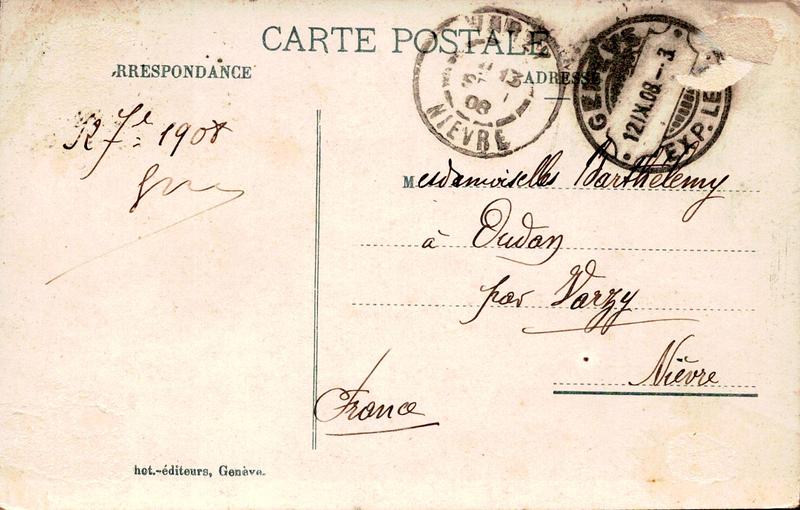 CARTE POSTALE
RRESPONDANCE
ADRESSE
VARZY
13
9
08
NIÈVRE
GENÈVE
12.IX.08.-3
EXP. LE
12 7e 1908
Mesdemoiselles Barthélemy
à Oudan
par Varzy
Nièvre
France
hot.-éditeurs, Genève.